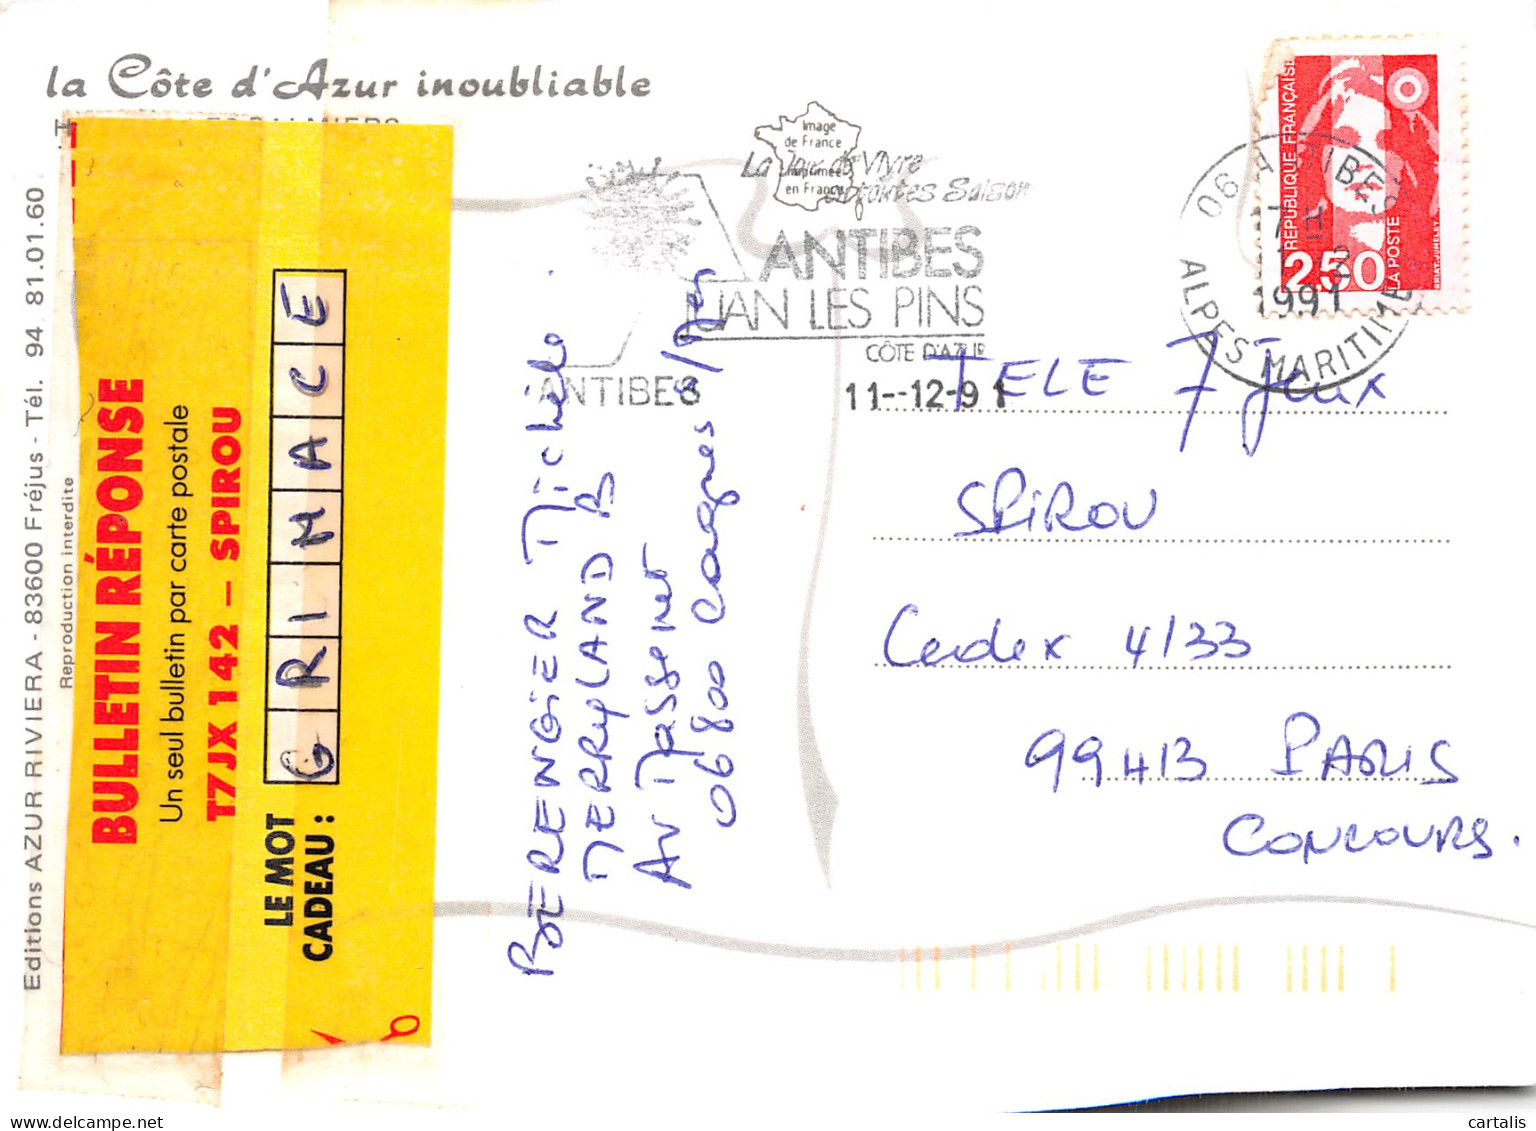 la Côte d'Azur inoubliable
Editions AZUR RIVIERA - 83600 Fréjus - Tél. 94 81.01.60
Reproduction interdite
BULLETIN RÉPONSE
Un seul bulletin par carte postale
T7JX 142 – SPIROU
LE MOT
CADEAU :
GRIMACE
Image
de France
imprimée
en France
La Joie de Vivre
en toutes Saison
ANTIBES
JUAN LES PINS
CÔTE D'AZUR
ANTIBES
11--12-91
BERENGIER Michèle.
MERRYLAND B
AV MASSENET
06800 Cagnes s/Mer
RÉPUBLIQUE FRANÇAISE
2,50
LA POSTE
06 ANTIBES
1991
ALPES MARITIMES
TELE 7 Jeux
SPIROU
Cedex 4133
99413 PARIS
CONCOURS.
cartalis
cartalis.com